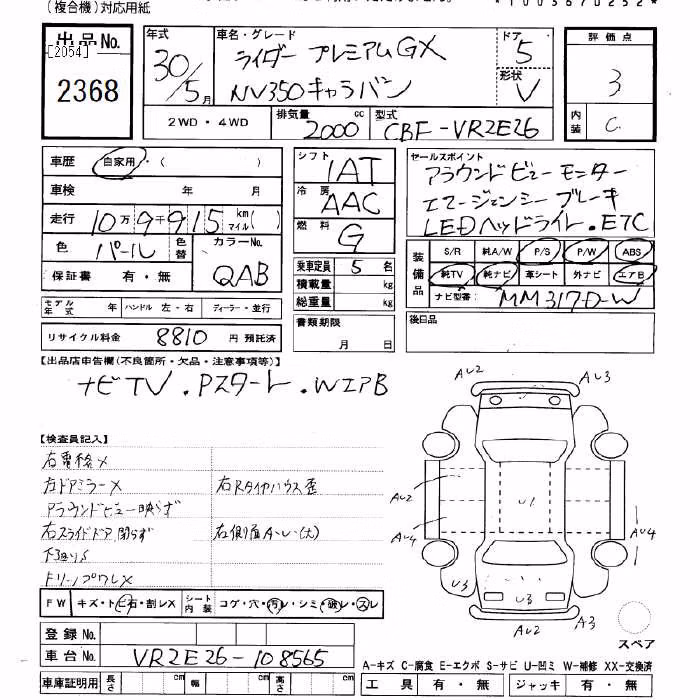 (複合機)対応用紙
*1003670252*
出品No. 年式 車名・グレード ドア 評価点
[2054] 30/5月 ライダー プレミアムGX 5
2368 NV350キャラバン 形状 V 3
2WD・4WD 排気量 2000 cc 型式 CBF-VR2E26 内装 C
車歴 自家用・( ) シフト IAT セールスポイント
アラウンドビューモニター
車検 年 月 冷房 AAC エマージェンシーブレーキ
走行 10万9千915 km マイル( ) LEDヘッドライト.ETC
色 パール 色替 カラーNo. QAB 燃料 G
装備品 S/R 純A/W P/S P/W ABS
保証書 有・無 乗車定員 5名 純TV 純ナビ 革シート 外ナビ エアB
積載量 kg ナビ型番: MM317D-W
モデル年式 年 ハンドル 左・右 ディーラー・並行 総重量 kg 後日品
リサイクル料金 8810 円 預託済 書類期限 月 日
【出品店申告欄(不良箇所・欠品・注意事項等)】
ナビTV.Pスタート.WエアB
AU2 AU3
【検査員記入】
右電格×
右ドアミラー× 右Rタイヤハウス歪
アラウンドビュー映らず
右スライドドア閉らず 右側面A~U(大)
下廻りS
AU2 U1 AU4 AU4
U3 U3
AU2 A3
FW キズ・トビ石・割レX シート内装 コゲ・穴・汚レ・シミ・破レ・スレ
スペア
登録No.
車台No. VR2E26-108565
A-キズ C-腐食 E-エクボ S-サビ U-凹ミ W-補修 XX-交換済
車庫証明用 長さ cm 幅 cm 高さ cm 工具 有・無 ジャッキ 有・無